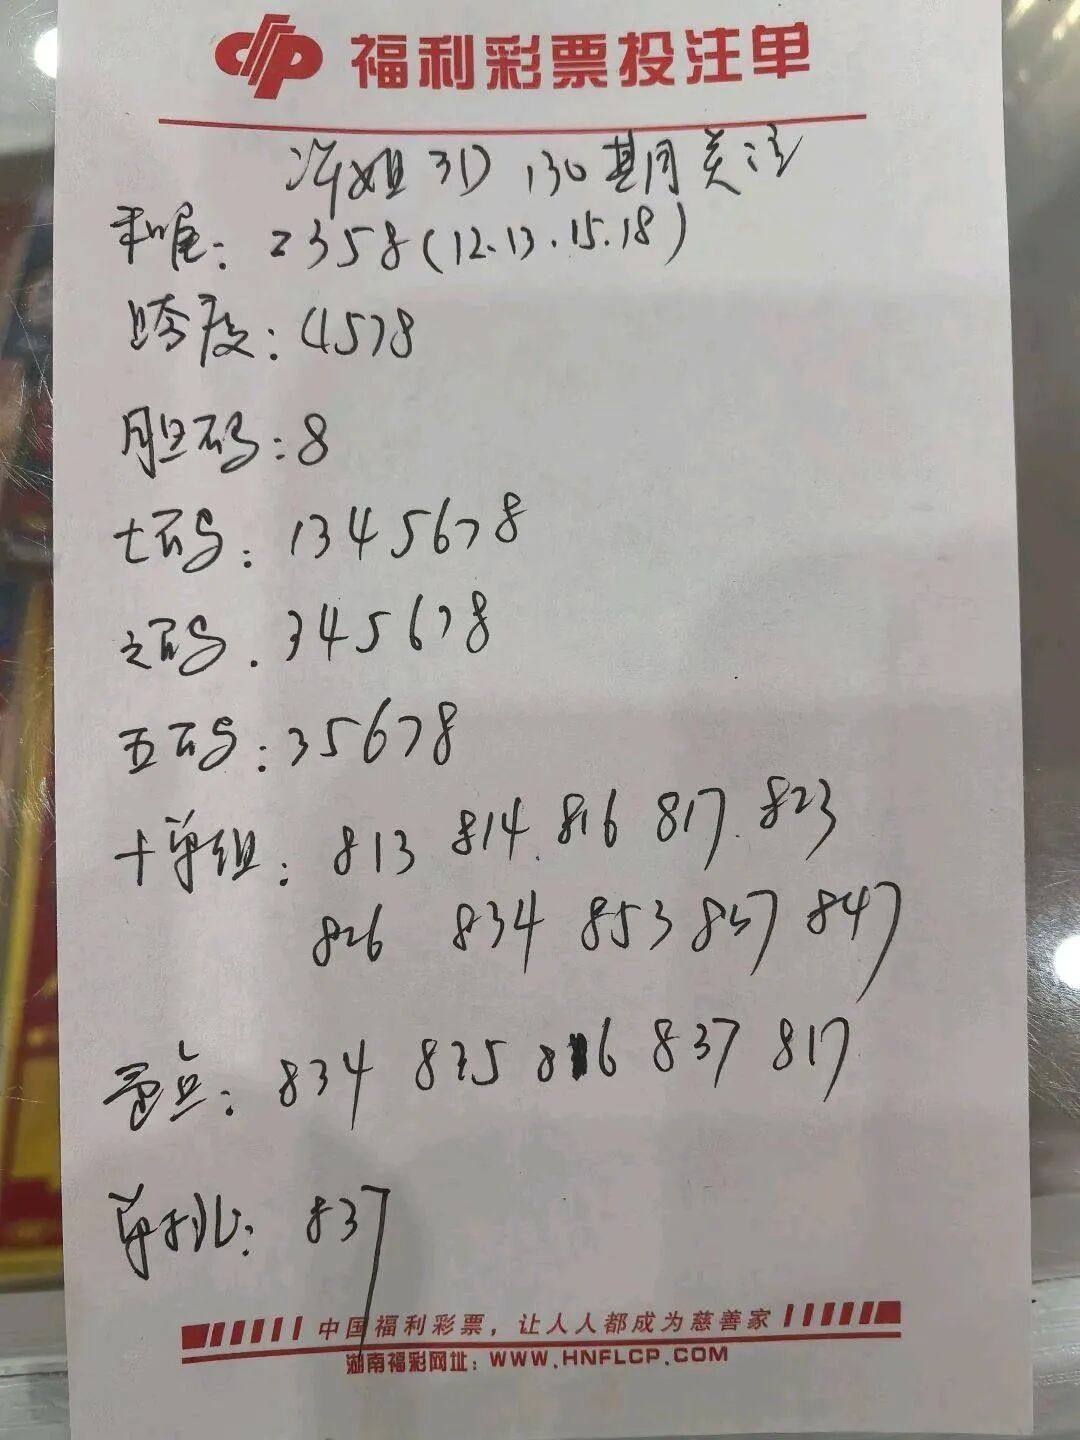 福利彩票投注单
姐 3D 130期关注
和尾:2358(12.13.15.18)
跨度:4578
胆码:8
七码:1345678
六码.345678
五码:35678
十单组:813 814 816 817 823
826 834 853 857 847
重点:834 835 816 837 817
单挑:837
中国福利彩票，让人人都成为慈善家
湖南福彩网址:WWW.HNFLCP.COM